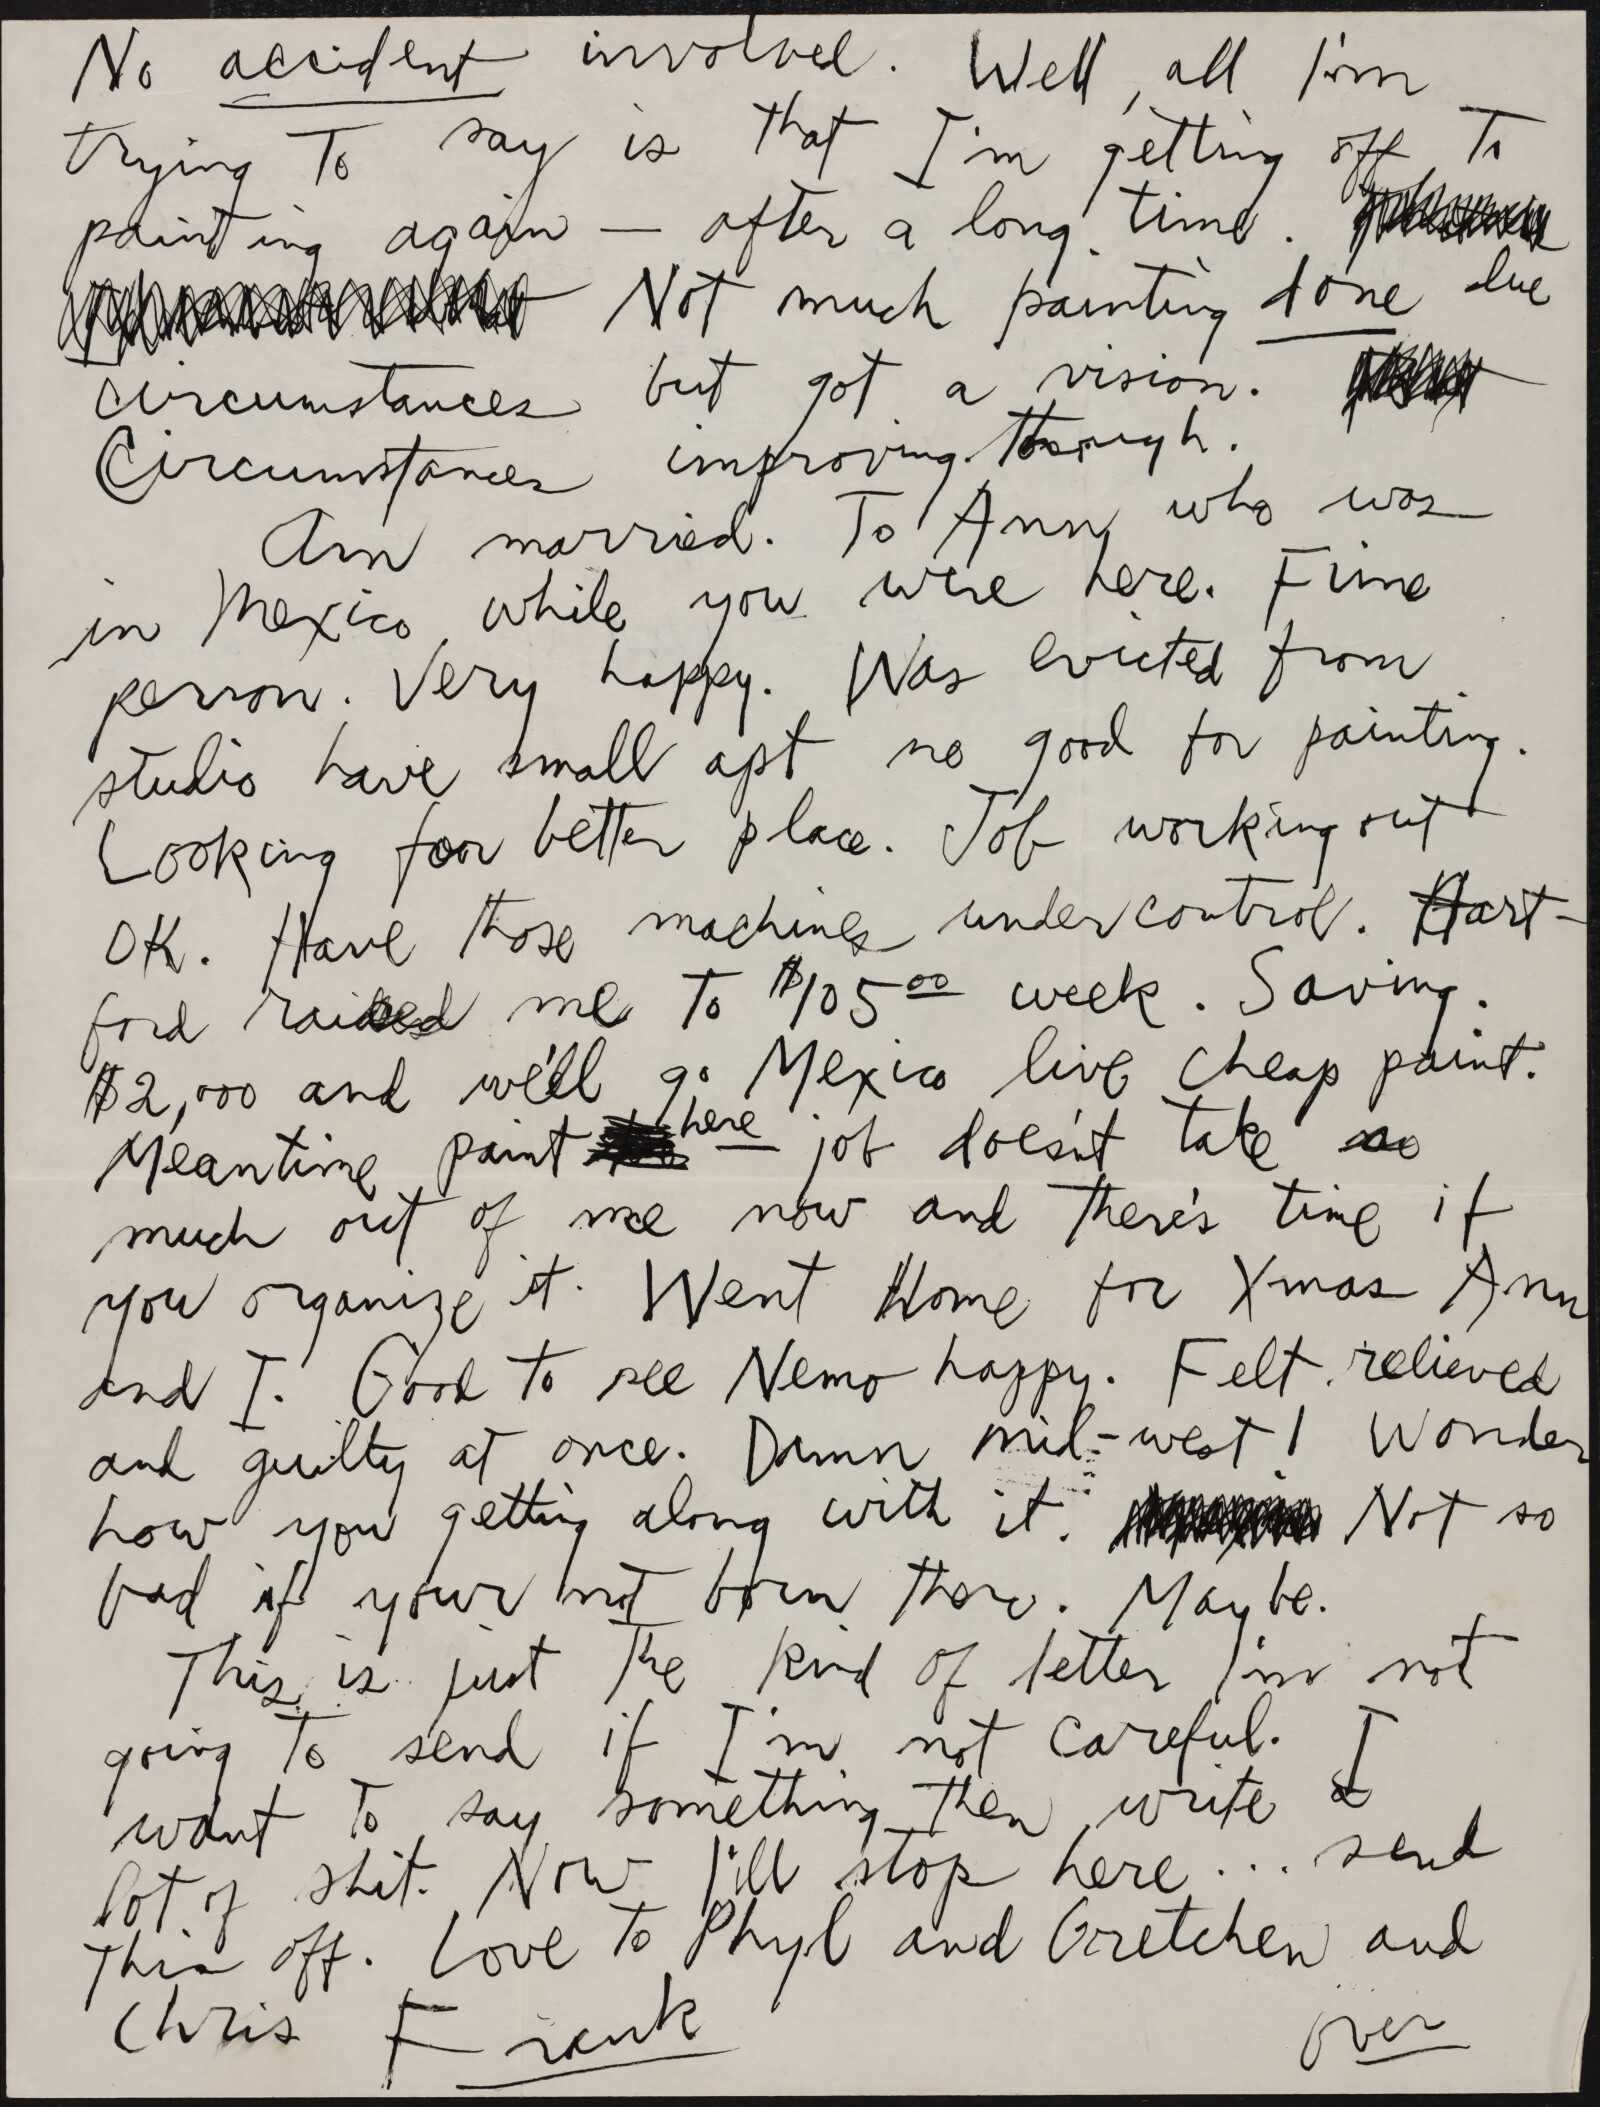 No accident involved. Well, all I'm
trying to say is that I'm getting off to
painting again — after a long time.
Not much painting done due
circumstances but got a vision.
Circumstances improving though.
Am married. To Ann, who was
in Mexico while you were here. Fine
person. Very happy. Was evicted from
studio have small apt no good for painting.
Looking for better place. Job working out
OK. Have those machines under control. Hart-
ford raised me to $105.00 week. Saving.
$2,000 and we'll go Mexico live cheap paint.
Meantime paint here — job doesn't take so
much out of me now and there's time if
you organize it. Went Home for Xmas Ann
and I. Good to see Nemo happy. Felt relieved
and guilty at once. Damn mid-west! Wonder
how you getting along with it. Not so
bad if your not born there. Maybe.
This is just the kind of letter I'm not
going to send if I'm not careful. I
want to say something then write a
lot of shit. Now I'll stop here ... send
this off. Love to Phyl and Gretchen and
Chris Frank
over